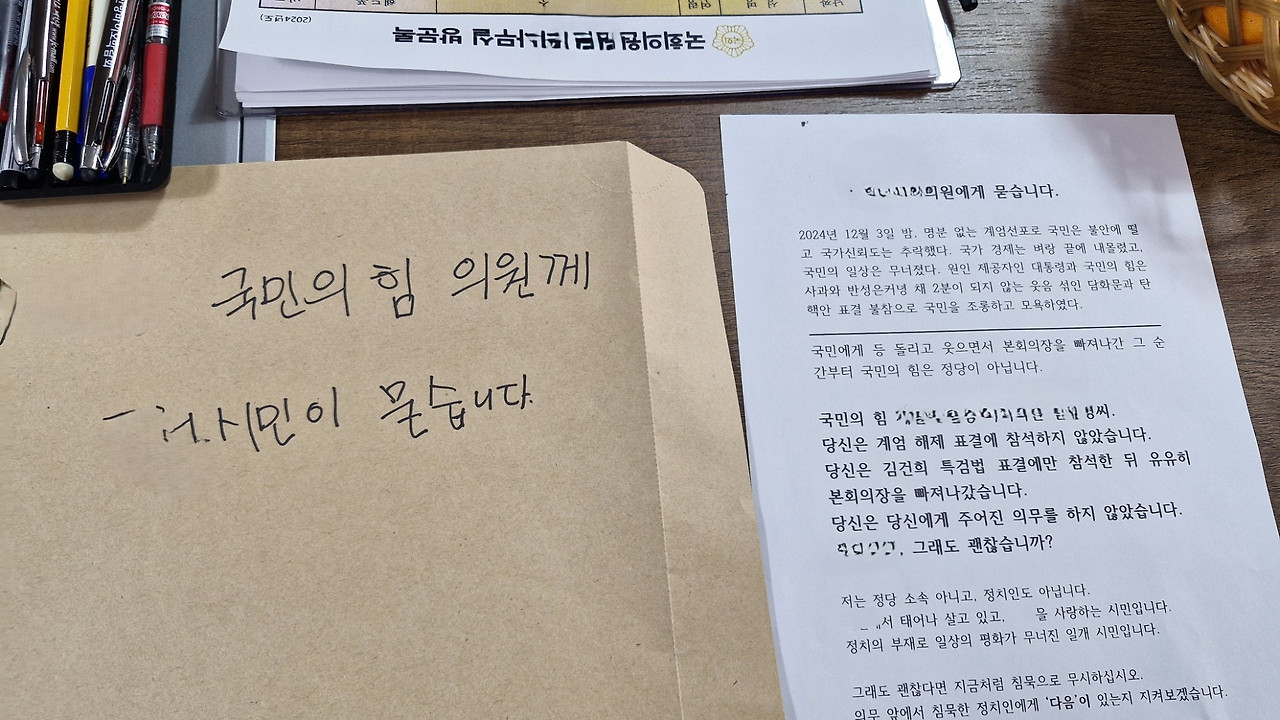 국회의원 사무실 방문록
(2024년도)
국민의 힘 의원께
시민이 묻습니다
의원에게 묻습니다.
2024년 12월 3일 밤, 명분 없는 계엄선포로 국민은 불안에 떨
고 국가신뢰도는 추락했다. 국가 경제는 벼랑 끝에 내몰렸고,
국민의 일상은 무너졌다. 원인 제공자인 대통령과 국민의 힘은
사과와 반성은커녕 채 2분이 되지 않는 웃음 섞인 담화문과 탄
핵안 표결 불참으로 국민을 조롱하고 모욕하였다.
국민에게 등 돌리고 웃으면서 본회의장을 빠져나간 그 순
간부터 국민의 힘은 정당이 아닙니다.
국민의 힘
당신은 계엄 해제 표결에 참석하지 않았습니다.
당신은 김건희 특검법 표결에만 참석한 뒤 유유히
본회의장을 빠져나갔습니다.
당신은 당신에게 주어진 의무를 하지 않았습니다.
그래도 괜찮습니까?
저는 정당 소속 아니고, 정치인도 아닙니다.
서 태어나 살고 있고, 을 사랑하는 시민입니다.
정치의 부재로 일상의 평화가 무너진 일개 시민입니다.
그래도 괜찮다면 지금처럼 침묵으로 무시하십시오.
의무 앞에서 침묵한 정치인에게 '다음'이 있는지 지켜보겠습니다.